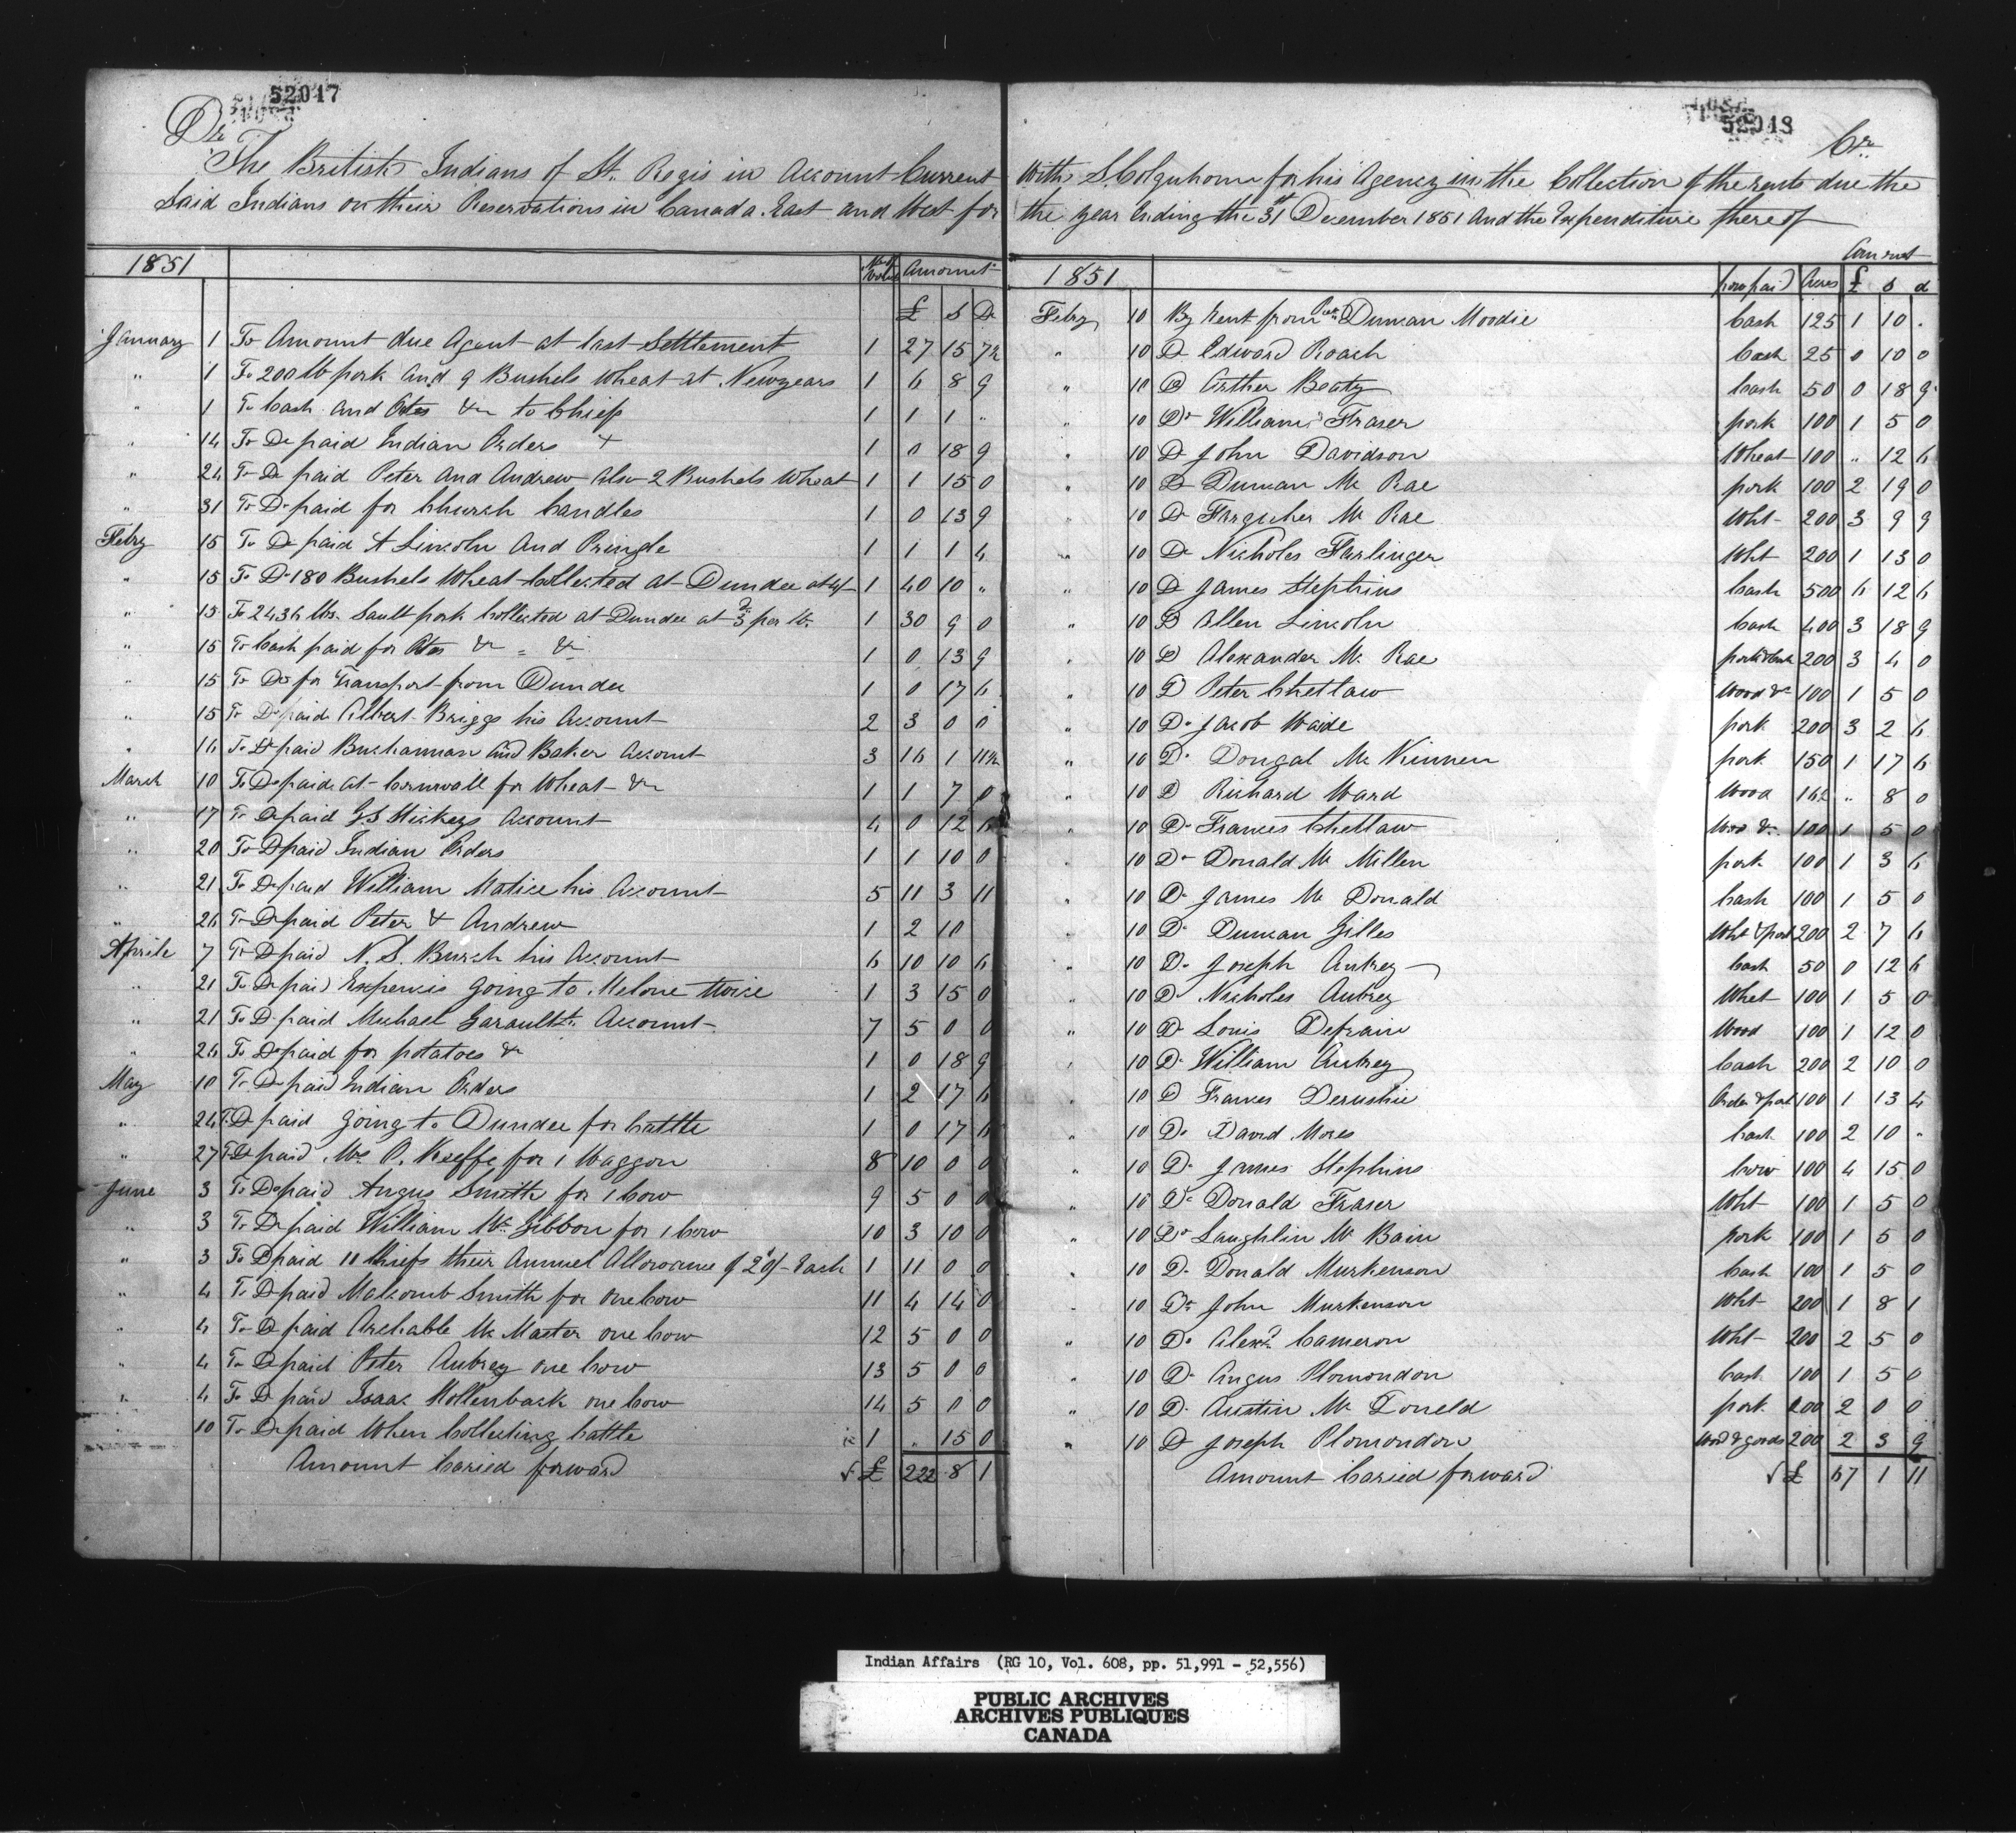 52017
Dr
The British Indians of St. Regis in Account Current
Said Indians on their Reservations in Canada East and West for
1851 Amount
£ S D
January 1 To Amount due Agent at last Settlement 1 27 15 7½
" 1 To 200 lb pork and 9 Bushels Wheat at Newyears 1 6 8 9
" 1 To Cash and Otes &c to Chiefs 1 1 1 "
" 14 To Do paid Indian Orders + 1 0 18 9
" 24 To Do paid Peter and Andrew Also 2 Bushels Wheat 1 1 15 0
" 31 To Do paid for Church Candles 1 0 13 9
Febry 15 To Do paid A Lincoln And Pringle 1 1 1 4
" 15 To Do 180 Bushels Wheat Collected at Dundee at 4/6 1 40 10 "
" 15 To 2436 lbs. Sault pork Collected at Dundee at 3d per lb. 1 30 9 0
" 15 To Cash paid for Otes &c = &c 1 0 13 9
" 15 To Do for Transport from Dundee 1 0 17 6
" 15 To Do paid Albert Briggs his Account 2 3 0 0
" 16 To Do paid Buchannan and Baker Account 3 16 1 11½
March 10 To Do paid at Cornwall for Wheat &c 1 1 7 0
" 17 To Do paid G S Hickeys Account 4 0 12 6
" 20 To Do paid Indian Orders 1 1 10 0
" 21 To Do paid William Matice his Account 5 11 3 11
" 26 To Do paid Peter & Andrew 1 2 10
Aprile 7 To Do paid N. S. Burch his Account 6 10 10 6
" 21 To Do paid Expencis going to Melone twice 1 3 15 0
" 21 To Do paid Michael Garaults Account 7 5 0 0
" 26 To Do paid for potatoes &c 1 0 18 9
May 10 To Do paid Indian Orders 1 2 17 6
" 24 To Do paid going to Dundee for Cattle 1 0 17 6
" 27 To Do paid Mr P. Keeffe for 1 Waggon 8 10 0 0
June 3 To Do paid Angus Smith for 1 Cow 9 5 0 0
" 3 To Do paid William Mc Gibbon for 1 Cow 10 3 10 0
" 3 To Do paid 11 Chiefs their Annuel Allowance of 20/- Each 1 11 0 0
" 4 To Do paid Malcomb Smith for one Cow 11 4 14 0
" 4 To Do paid Archable Mc Master one Cow 12 5 0 0
" 4 To Do paid Peter Aubrey one Cow 13 5 0 0
" 4 To Do paid Isaac Hollenback one Cow 14 5 0 0
" 10 To Do paid When Collecting Cattle 1 " 15 0
Amount Caried forward £ 222 8 1
52018
Cr
With S. Colquhoun for his Agency in the Collection of the rents due the
the year Ending the 31st December 1851 And the Expenditure there of
1851 how paid Acres £ s d
Febry 10 By Rent from Duncan Moodie Cash 125 1 10 .
" 10 Do Edward Roach Cash 25 0 10 0
" 10 Do Arther Beaty Cash 50 0 18 9
" 10 Do William Fraser pork 100 1 5 0
" 10 Do John Davidson Wheat 100 " 12 6
" 10 Do Duncan Mc Rae pork 100 2 19 0
" 10 Do Farquher Mc Rae Wht 200 3 9 9
" 10 Do Nicholes Farlinger Wht 200 1 13 0
" 10 Do James Stephins Cash 500 6 12 6
" 10 Do Allen Lincoln Cash 400 3 18 9
" 10 Do Alexander Mc Rae pork & Cash 200 3 4 0
" 10 Do Peter Chettaw Wood &c 100 1 5 0
" 10 Do Jacob Waide pork 200 3 2 6
" 10 Do Dougal Mc Kinnen pork 150 1 17 6
" 10 Do Richard Ward Wood 16½ " 8 0
" 10 Do Frances Chettaw Woo &c 100 1 5 0
" 10 Do Donald Mc Millen pork 100 1 3 6
" 10 Do James Mc Donald Cash 100 1 5 0
" 10 Do Duncan Gilles Wht & pork 200 2 7 6
" 10 Do Joseph Aubrey Cash 50 0 12 6
" 10 Do Nicholes Aubrey Whet 100 1 5 0
" 10 Do Louis Defrain Wood 100 1 12 0
" 10 Do William Aubrey Cash 200 2 10 0
" 10 Do Frances Derushie Order & pork 100 1 13 4
" 10 Do David Mores Cash 100 2 10 "
" 10 Do James Stephins Cow 100 4 15 0
" 10 Do Donald Fraser Wht 100 1 5 0
" 10 Do Laughlin Mc Bain pork 100 1 5 0
" 10 Do Donald Murkenson Cash 100 1 5 0
" 10 Do John Murkenson Wht 200 1 8 1
" 10 Do Alexr Cameron Wht 200 2 5 0
" 10 Do Angus Plomondon Cash 100 1 5 0
" 10 Do Austin Mc Doneld pork 200 2 0 0
" 10 Do Joseph Plomondon Wood & goods 200 2 3 9
Amount Caried forward £ 67 1 11
Indian Affairs (RG 10, Vol. 608, pp. 51,991 - 52,556)
PUBLIC ARCHIVES
ARCHIVES PUBLIQUES
CANADA